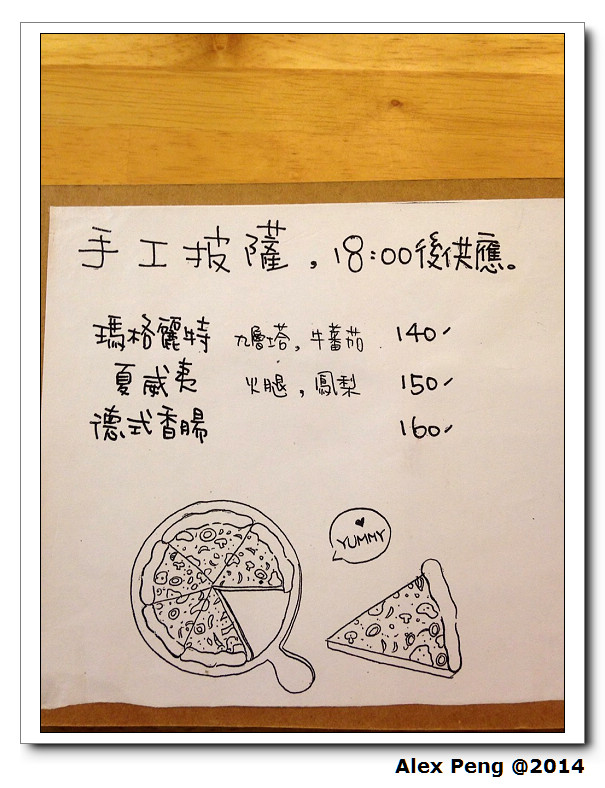 手工披薩，18:00後供應。
瑪格麗特 九層塔，牛蕃茄 140
夏威夷 火腿，鳳梨 150
德式香腸 160
YUMMY
Alex Peng @2014